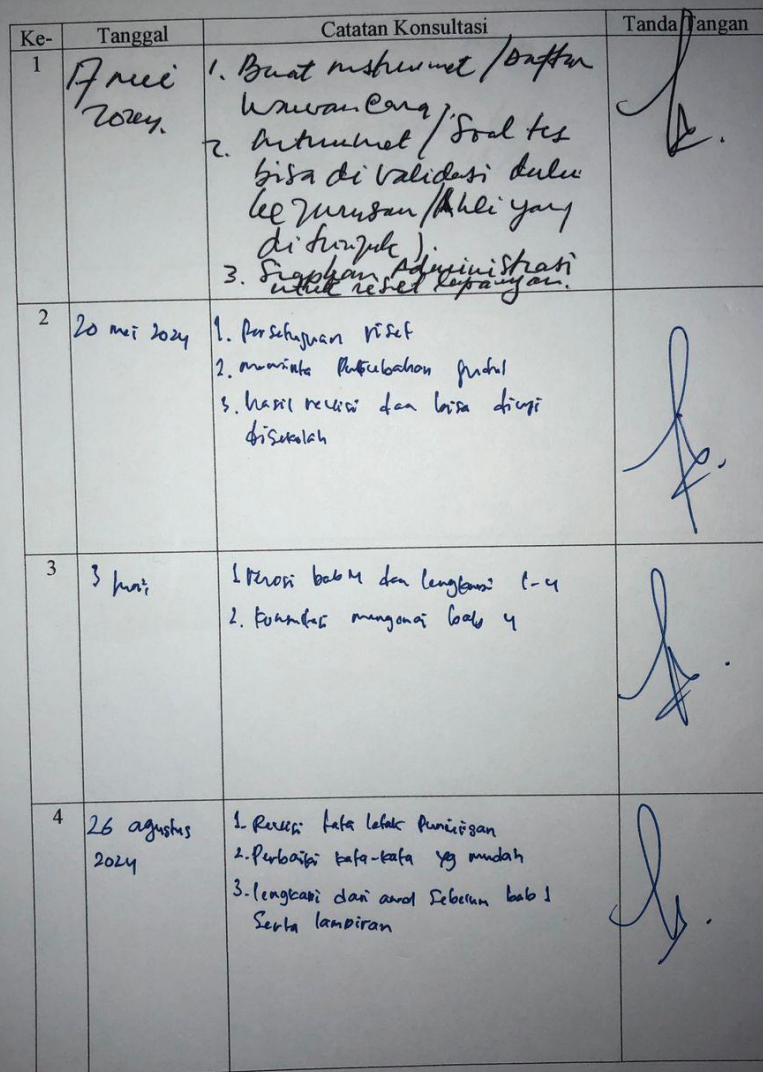 Ke- Tanggal Catatan Konsultasi Tanda Tangan
1
7 mei
2024.
1. Buat instrumet / Daftar
wawancara;
2. instrumet / Soal tes
bisa di validasi dulu
ke jurusan / Ahli yang
ditunjuk).
3. Siapkan Administrasi
untuk reset lapangan.
2 20 mei 2024
1. Persetujuan riset
2. meminta judul
3. hasil revisi dan bisa diuji
disekolah
3 3 juni
1 revisi bab 4 dan lengkapi 1-4
2. Konsultasi mengenai bab 4
4 26 agustus
2024
1. Revisi tata letak Penulisan
2. Perbaiki kata-kata yg mudah
3. lengkapi dari awal Sebelum bab 1
Serta lampiran